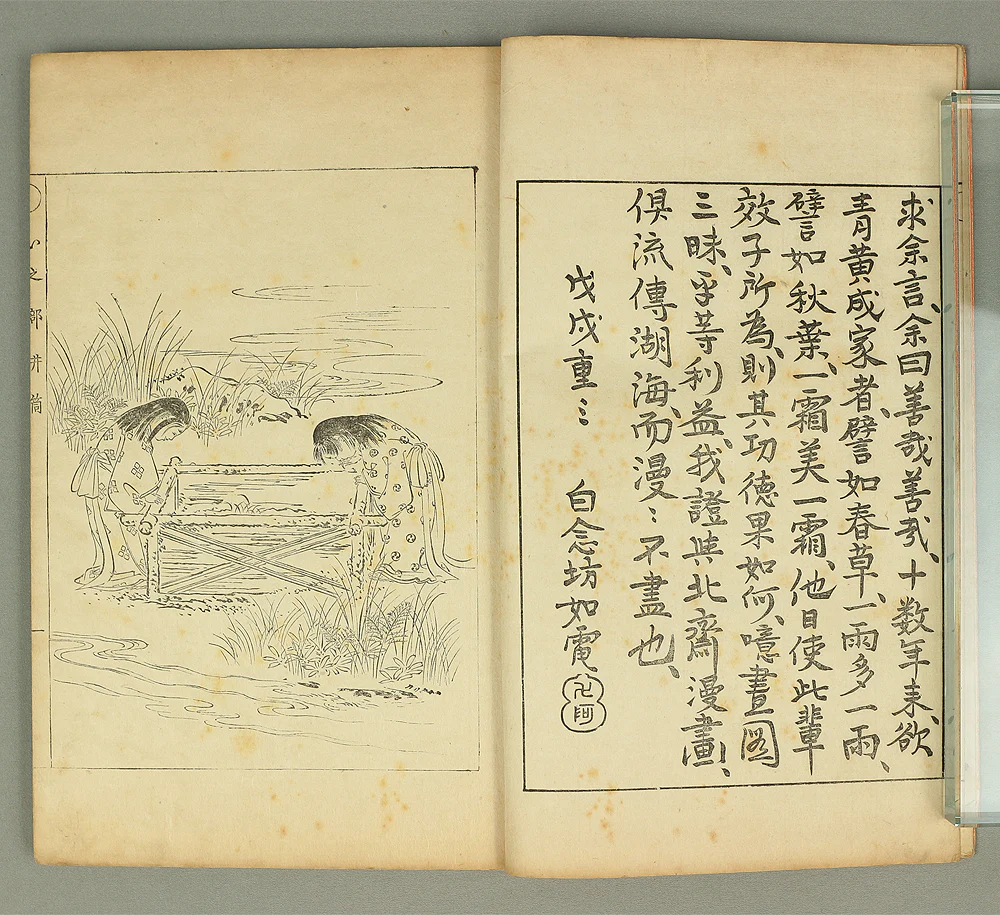 求余言、余曰善哉善哉、十数年来、欲
青黄成家者、譬如春草、一雨多一雨、
譬如秋葉、一霜美一霜、他日使此輩
效子所為、則其功徳果如何、噫畫図
三昧、平等利益、我證與北齋漫畫、
倶流傳湖海、而漫〻不盡也、
戊戌重〻　白念坊如電
卍阿
心之
井筒
一